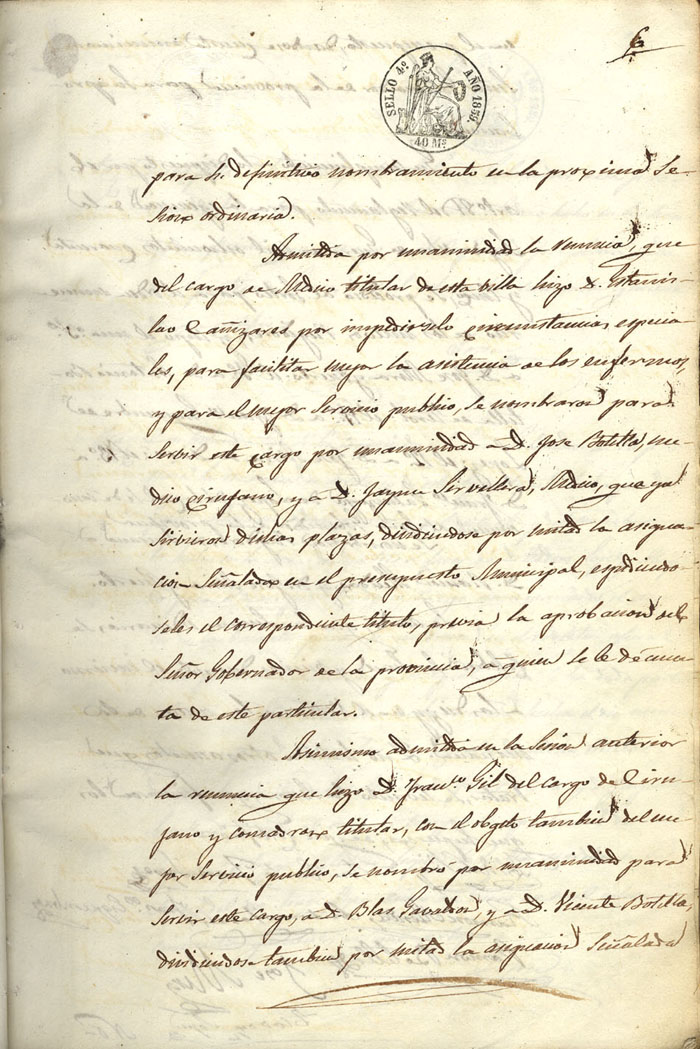 6
SELLO 4º AÑO 1853.
40 Ms
para su definitivo nombramiento en la proxima se-
sion ordinaria.
Admitida por unanimidad la renuncia, que
del cargo de Medico titular de esta villa hizo D. Estanis-
lao Cañizares por impedirselo circunstancias especia-
les, para facilitar mejor la asistencia de los enfermos,
y para el mejor servicio publico, se nombraron para
servir este cargo por unanimidad a D. Jose Botella, me-
dico cirujano, y a D. Jayme Medico, que ya
sirvieron dichas plazas, dividiendose por mitad la asigna-
cion señalada en el presupuesto Municipal, espidiendo
seles el correspondiente titulo, previa la aprobacion del
Señor Gobernador de la provincia, a quien se le dé cuen-
ta de este particular.
Asimismo admitida en la sesion anterior
la renuncia que hizo D. Franco. Gil del cargo de Ciru-
jano y comadron titular, con el obgeto tambien del me-
jor servicio publico, se nombró por unanimidad para
servir este cargo, a D. Blas y a D. Vicente Botella,
dividiendose tambien por mitad la asignacion señalada